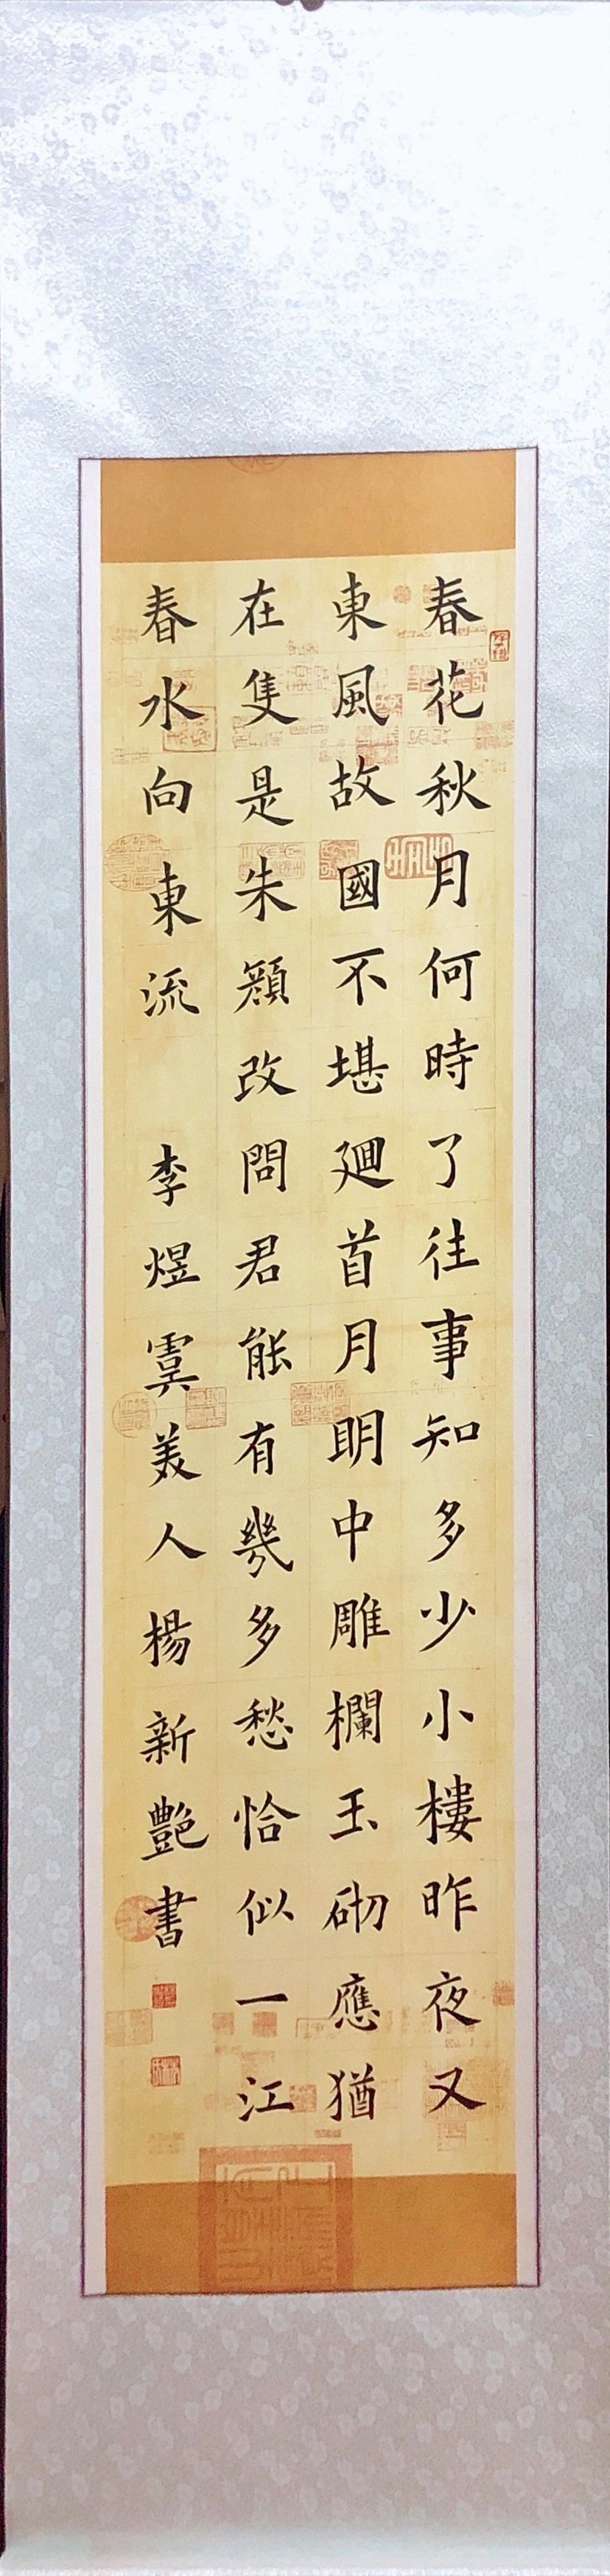 春花秋月何時了往事知多少小樓昨夜又
東風故國不堪廻首月明中雕欄玉砌應猶
在隻是朱顏改問君能有幾多愁恰似一江
春水向東流 李煜虞美人楊新艷書